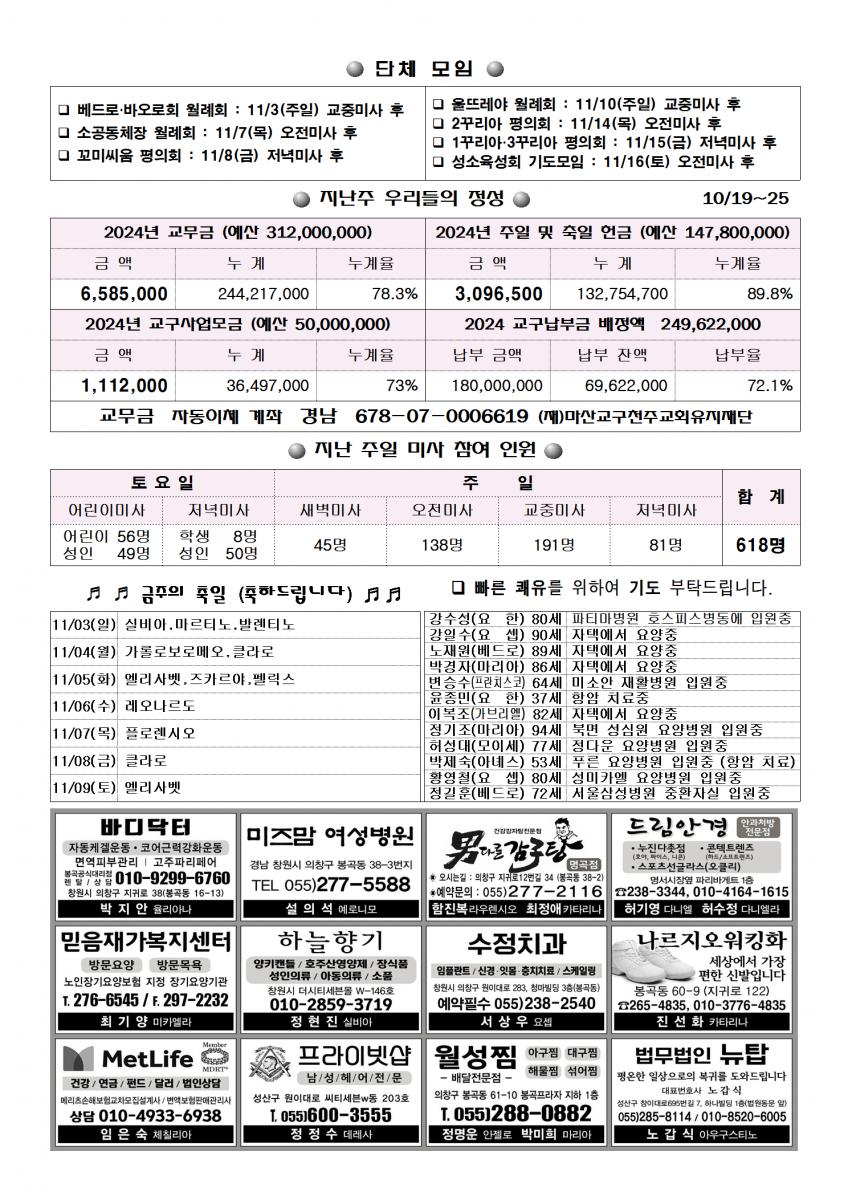 단체 모임
❑ 베드로·바오로회 월례회 : 11/3(주일) 교중미사 후
❑ 소공동체장 월례회 : 11/7(목) 오전미사 후
❑ 꼬미씨움 평의회 : 11/8(금) 저녁미사 후
❑ 울뜨레야 월례회 : 11/10(주일) 교중미사 후
❑ 2꾸리아 평의회 : 11/14(목) 오전미사 후
❑ 1꾸리아·3꾸리아 평의회 : 11/15(금) 저녁미사 후
❑ 성소육성회 기도모임 : 11/16(토) 오전미사 후
지난주 우리들의 정성 10/19~25
2024년 교무금 (예산 312,000,000) 2024년 주일 및 축일 헌금 (예산 147,800,000)
금 액 누 계 누계율 금 액 누 계 누계율
6,585,000 244,217,000 78.3% 3,096,500 132,754,700 89.8%
2024년 교구사업모금 (예산 50,000,000) 2024 교구납부금 배정액 249,622,000
금 액 누 계 누계율 납부 금액 납부 잔액 납부율
1,112,000 36,497,000 73% 180,000,000 69,622,000 72.1%
교무금 자동이체 계좌 경남 678-07-0006619 (재)마산교구천주교회유지재단
지난 주일 미사 참여 인원
토요일 주 일 합 계
어린이미사 저녁미사 새벽미사 오전미사 교중미사 저녁미사
어린이 56명 학생 8명 45명 138명 191명 81명 618명
성인 49명 성인 50명
♬ ♬ 금주의 축일 (축하드립니다) ♬♬
11/03(일) 실비아.마르티노.발렌티노
11/04(월) 가롤로보로메오.클라로
11/05(화) 엘리사벳.즈카르야.펠릭스
11/06(수) 레오나르도
11/07(목) 플로렌시오
11/08(금) 클라로
11/09(토) 엘리사벳
❑ 빠른 쾌유를 위하여 기도 부탁드립니다.
강수성(요 한) 80세 파티마병원 호스피스병동에 입원중
강일수(요 셉) 90세 자택에서 요양중
노재원(베드로) 89세 자택에서 요양중
박경자(마리아) 86세 자택에서 요양중
변승수(프란치스코) 64세 미소안 재활병원 입원중
윤종민(요 한) 37세 항암 치료중
이복조(가브리엘) 82세 자택에서 요양중
정기조(마리아) 94세 북면 성심원 요양병원 입원중
허성대(모이세) 77세 정다운 요양병원 입원중
박제숙(아녜스) 53세 푸른 요양병원 입원중 (항암 치료)
황영철(요 셉) 80세 성미카엘 요양병원 입원중
정길훈(베드로) 72세 서울삼성병원 중환자실 입원중
바디닥터
자동케겔운동 · 코어근력강화운동
면역피부관리 | 고주파리페어
봉곡공석대리점
렌 탈 / 상 담 010-9299-6760
창원시 의창구 지귀로 38(봉곡동 16-13)
박지안 율리아나
미즈맘 여성병원
경남 창원시 의창구 봉곡동 38-3번지
TEL 055)277-5588
설의석 예로니모
건강감자탕전문점
男다른감루탕
명곡점
◉ 오시는길 : 의창구 지귀로12번길 34 (봉곡동 38-2)
◉예약문의 : 055)277-2116
함진복라우렌시오 최정애카타리나
드림안경 안과처방 전문점
• 누진다초점 • 콘텍트렌즈
(호야, 짜이스, 니콘) (하드/소프트렌즈)
• 스포츠선글라스(오클리)
명서시장옆 파리바게트 1층
☎238-3344, 010-4164-1615
허기영 다니엘 허수정 다니엘라
믿음재가복지센터
방문요양 방문목욕
노인장기요양보험 지정 장기요양기관
T. 276-6545 / F. 297-2232
최기양 미카엘라
하늘향기
양키캔들 / 호주산영양제 / 장식품
성인의류 / 아동의류 / 소품
창원시 더시티세븐몰 W-146호
010-2859-3719
정현진 실비아
수정치과
임플란트 / 신경·잇몸·충치치료 / 스케일링
창원시 의창구 원이대로 283, 청마빌딩 3층(봉곡동)
예약필수 055)238-2540
서상우 요셉
나르지오워킹화
세상에서 가장
편한 신발입니다
봉곡동 60-9 (지귀로 122)
☎265-4835, 010-3776-4835
진선화 카타리나
MetLife Member MDRT
건강 / 연금 / 펀드 / 달러 / 법인상담
메리츠손해보험교차모집설계사 / 변액보험판매관리사
상담 010-4933-6938
임은숙 체칠리아
프라이빗샵
남/성/헤/어/전/문
성산구 원이대로 씨티세븐w동 203호
T. 055)600-3555
정정수 데레사
월성찜 아구찜 대구찜
– 배달전문점 – 해물찜 섞어찜
의창구 봉곡동 61-10 봉곡프라자 지하 1층
T. 055)288-0882
정명운 안젤로 박미희 마리아
법무법인 뉴탑
평온한 일상으로의 복귀를 도와드립니다
대표변호사 노갑식
성산구 창이대로695번길 7, 하나빌딩 1층(법원동문 앞)
055)285-8114 / 010-8520-6005
노갑식 아우구스티노